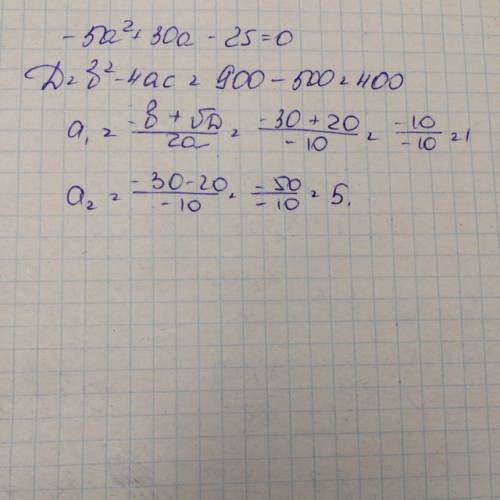 -5a²+30a-25=0
D=b²-4ac=900-500=400
a₁=(-b+√D)/2a=(-30+20)/-10=-10/-10=1
a₂=(-30-20)/-10=-50/-10=5.